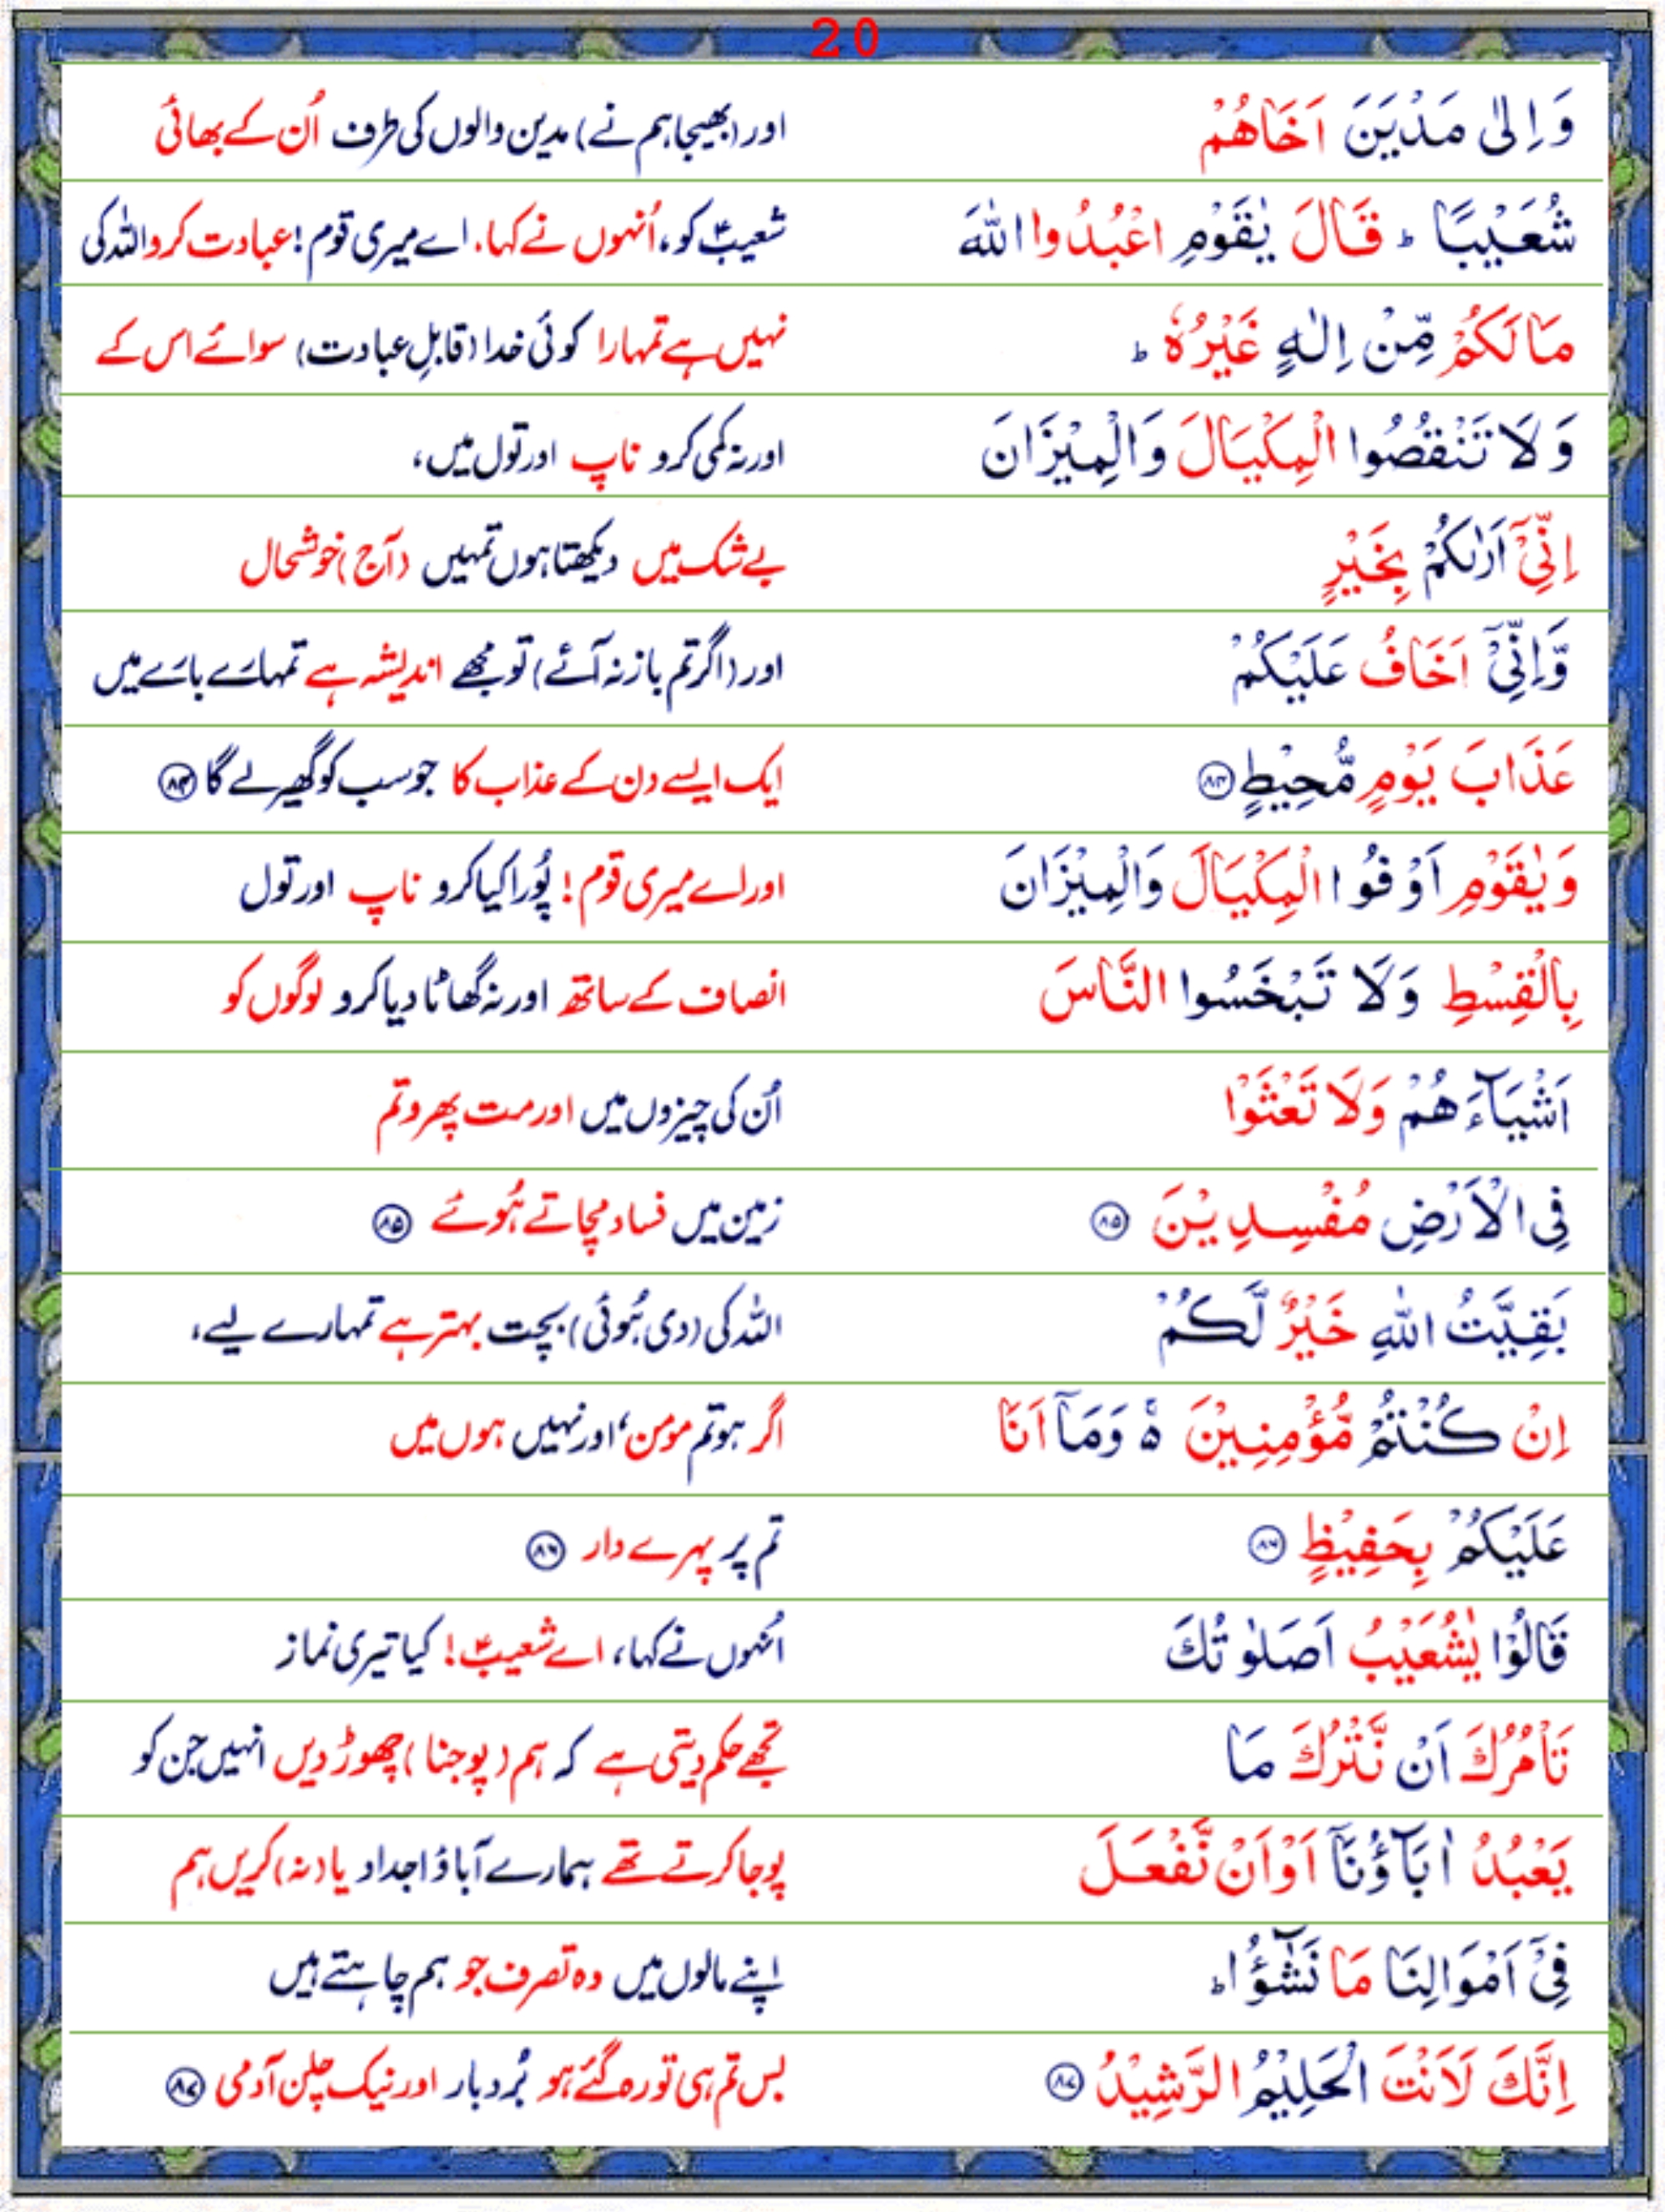 20
وَاِلٰى مَدْيَنَ اَخَاهُمْ اور (بھیجا ہم نے) مدین والوں کی طرف اُن کے بھائی
شُعَيْبًا ؕ قَالَ يٰقَوْمِ اعْبُدُوا اللّٰهَ شعیبؑ کو، اُنہوں نے کہا، اے میری قوم! عبادت کرو اللہ کی
مَا لَكُمْ مِّنْ اِلٰهٍ غَيْرُهٗ ؕ نہیں ہے تمہارا کوئی خدا (قابلِ عبادت) سوائے اس کے
وَلَا تَنْقُصُوا الْمِكْيَالَ وَالْمِيْزَانَ اور نہ کمی کرو ناپ اور تول میں،
اِنِّيْٓ اَرٰىكُمْ بِخَيْرٍ بے شک میں دیکھتا ہوں تمہیں (آج) خوشحال
وَّاِنِّيْٓ اَخَافُ عَلَيْكُمْ اور (اگر تم باز نہ آئے) تو مجھے اندیشہ ہے تمہارے بارے میں
عَذَابَ يَوْمٍ مُّحِيْطٍ ۸۴ ایک ایسے دن کے عذاب کا جو سب کو گھیر لے گا ۸۴
وَيٰقَوْمِ اَوْفُوا الْمِكْيَالَ وَالْمِيْزَانَ اور اے میری قوم! پُورا کیا کرو ناپ اور تول
بِالْقِسْطِ وَلَا تَبْخَسُوا النَّاسَ انصاف کے ساتھ اور نہ گھاٹا دیا کرو لوگوں کو
اَشْيَآءَهُمْ وَلَا تَعْثَوْا اُن کی چیزوں میں اور مت پھرو تم
فِى الْاَرْضِ مُفْسِدِيْنَ ۸۵ زمین میں فساد مچاتے ہُوئے ۸۵
بَقِيَّتُ اللّٰهِ خَيْرٌ لَّكُمْ اللہ کی (دی ہُوئی) بچت بہتر ہے تمہارے لیے،
اِنْ كُنْتُمْ مُّؤْمِنِيْنَ ۚ وَمَآ اَنَا اگر ہو تم مومن، اور نہیں ہوں میں
عَلَيْكُمْ بِحَفِيْظٍ ۸۶ تم پر پہرے دار ۸۶
قَالُوْا يٰشُعَيْبُ اَصَلٰوتُكَ اُنہوں نے کہا، اے شعیبؑ! کیا تیری نماز
تَاْمُرُكَ اَنْ نَّتْرُكَ مَا تجھے حکم دیتی ہے کہ ہم (پوجنا) چھوڑ دیں انہیں جن کو
يَعْبُدُ اٰبَآؤُنَآ اَوْ اَنْ نَّفْعَلَ پوجا کرتے تھے ہمارے آباؤ اجداد یا (نہ) کریں ہم
فِيْٓ اَمْوَالِنَا مَا نَشٰٓؤُا ؕ اپنے مالوں میں وہ تصرف جو ہم چاہتے ہیں
اِنَّكَ لَاَنْتَ الْحَلِيْمُ الرَّشِيْدُ ۸۷ بس تم ہی تو رہ گئے ہو بُردبار اور نیک چلن آدمی ۸۷